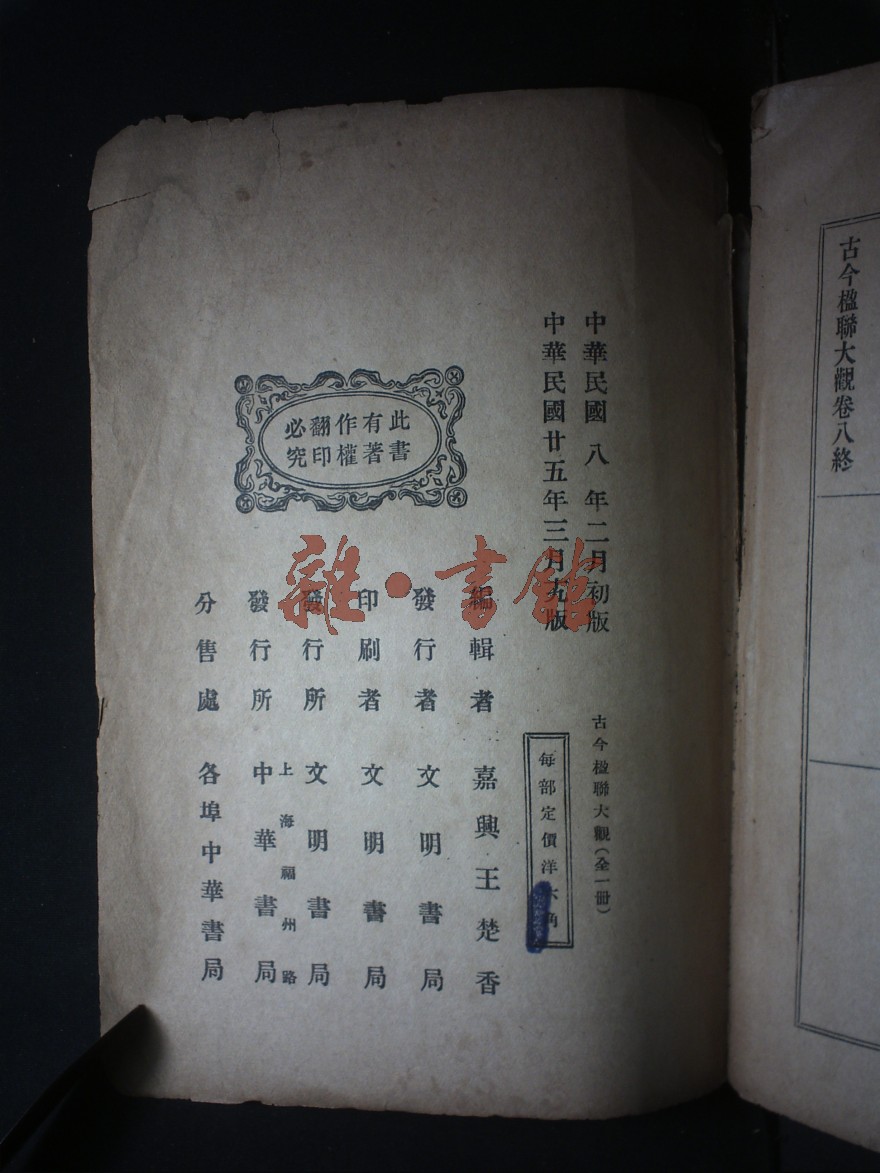 古今楹聯大觀卷八終
中華民國八年二月初版
中華民國廿五年三月九版
古今楹聯大觀（全一冊）
每部定價洋六角
編輯者 嘉興王楚香
發行者 文明書局
印刷者 文明書局
發行所 文明書局
上海福州路
發行所 中華書局
分售處 各埠中華書局
此書
有著
作權
翻印
必究
雜·書館